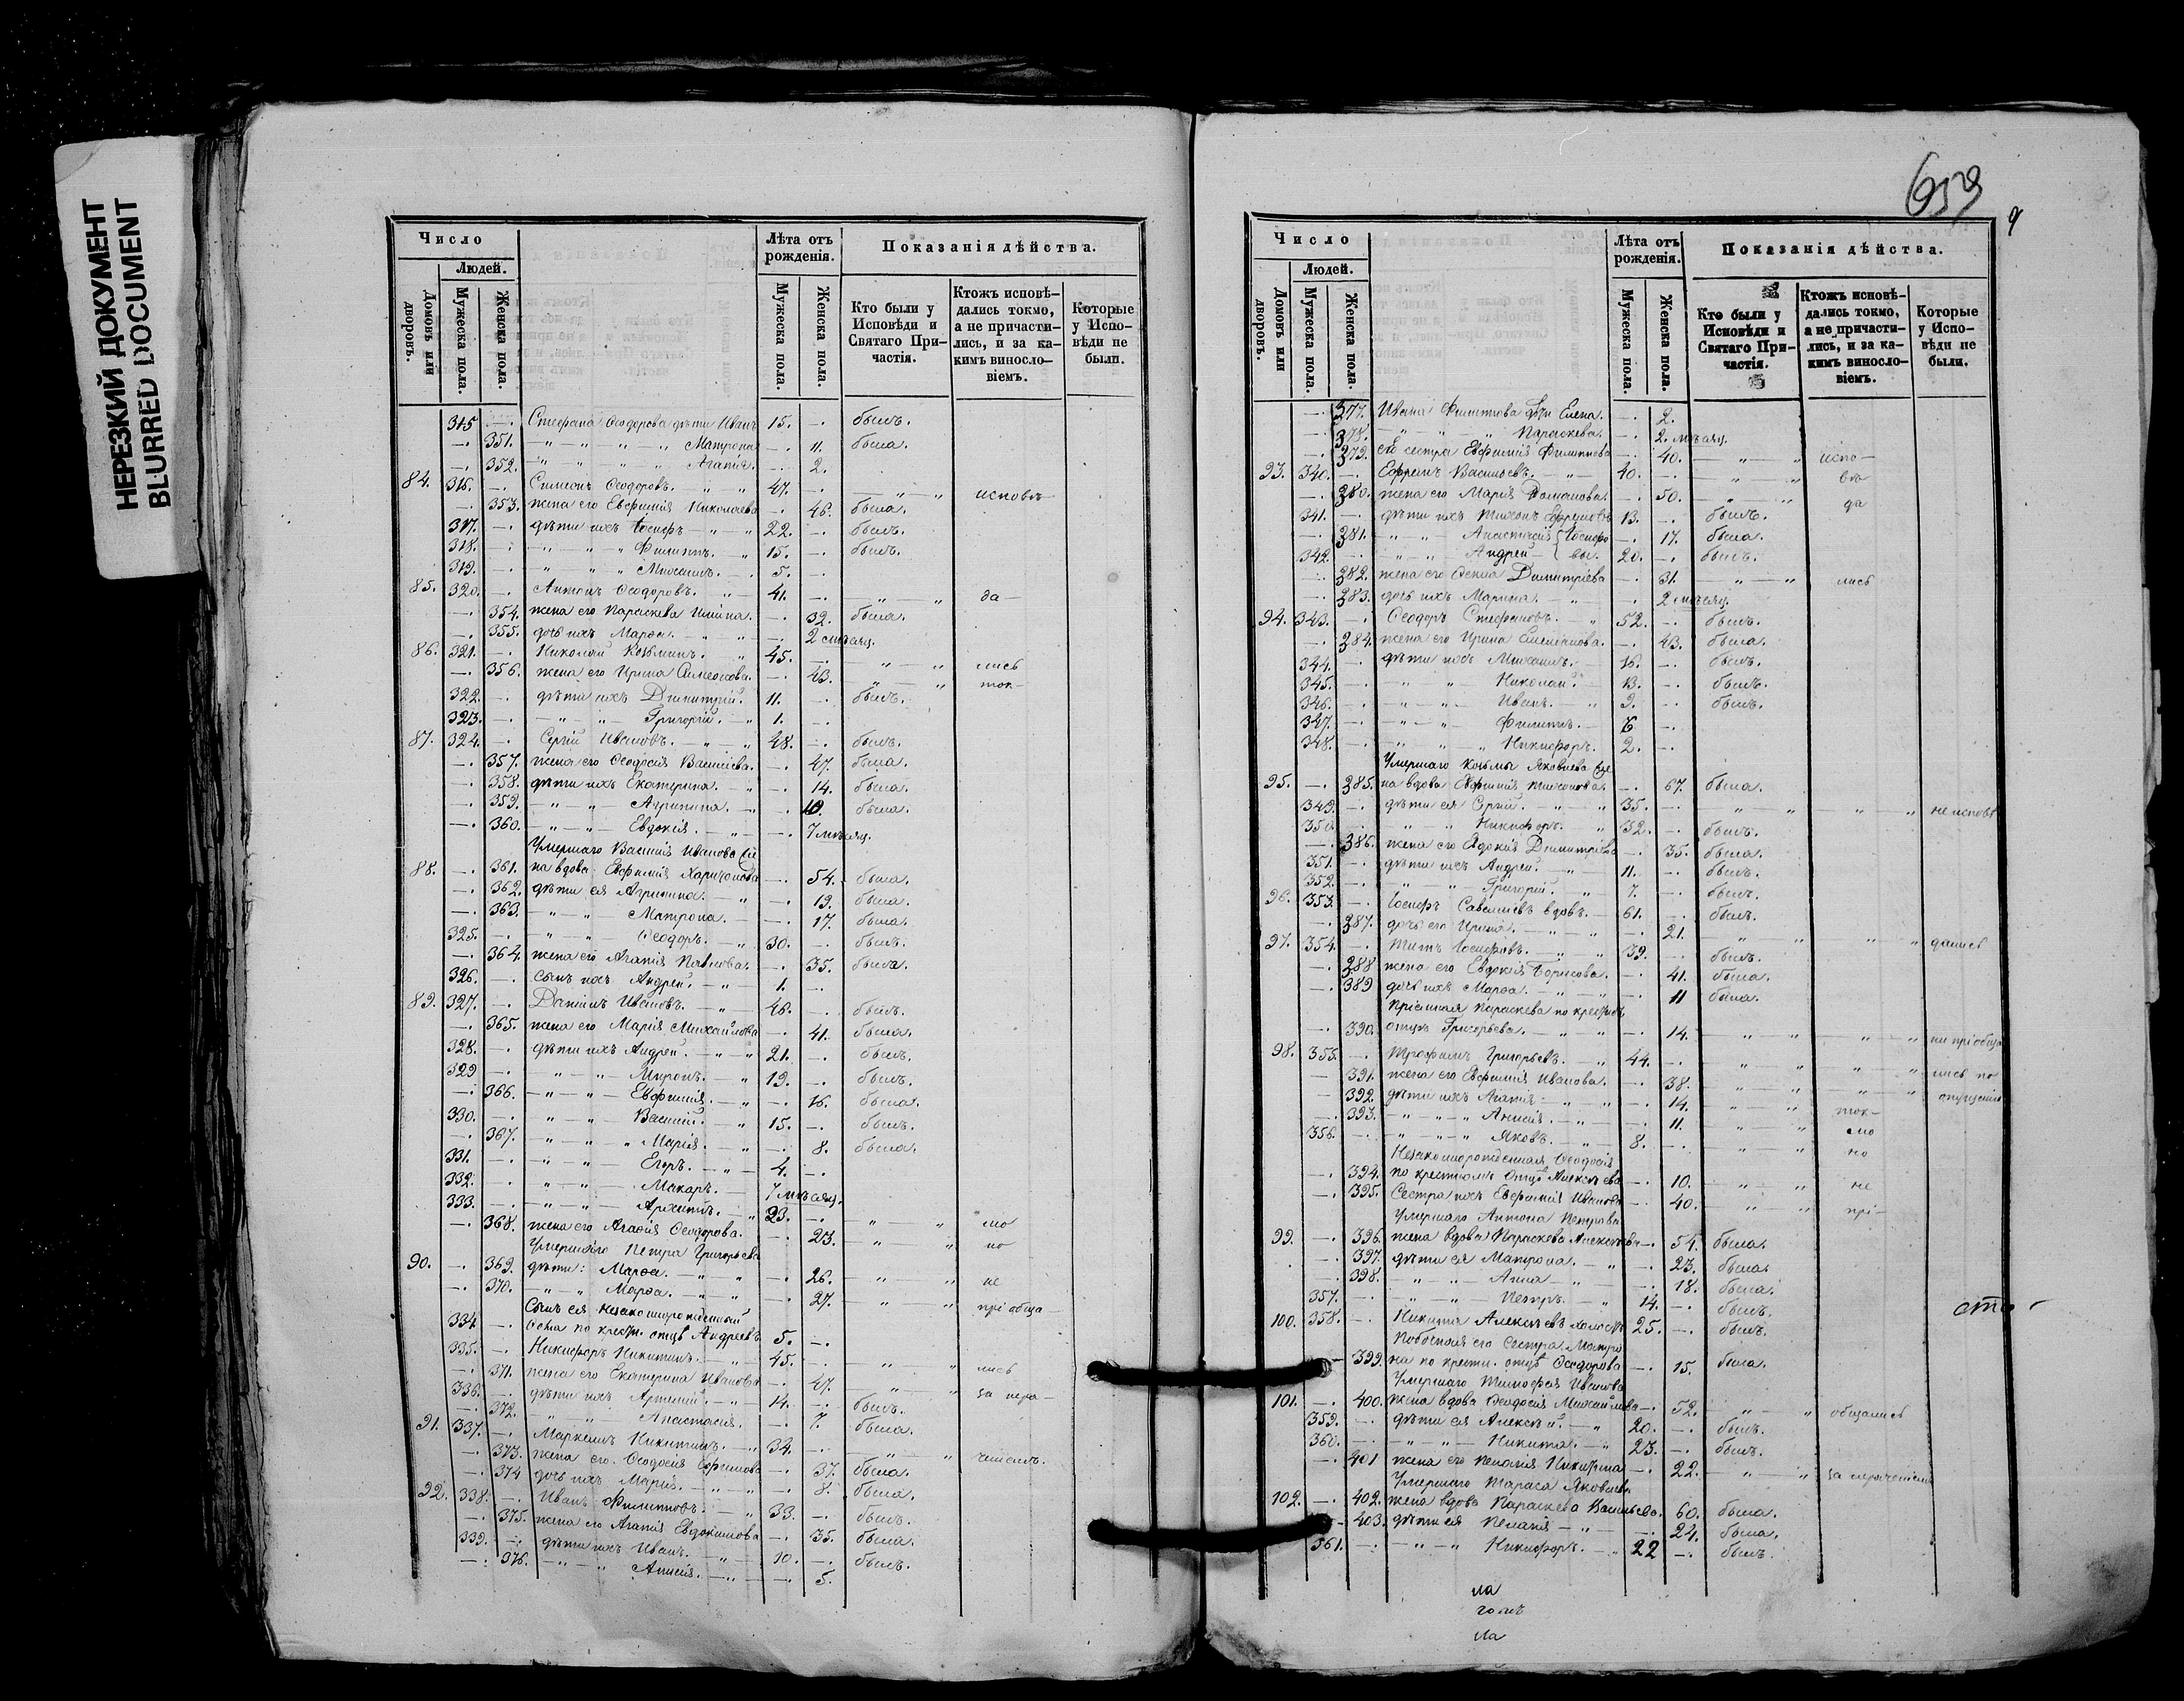 НЕРЕЗКИЙ ДОКУМЕНТ
BLURRED DOCUMENT
Число
Людей.
Домовъ или дворовъ.
Мужеска пола.
Женска пола.
Лѣта отъ рожденія.
Мужеска пола.
Женска пола.
Показанія дѣйства.
Кто были у Исповѣди и Святаго Причастія.
Ктожъ исповѣдались токмо, а не причастились, и за какимъ винословіемъ.
Которые у Исповѣди не были.
315 —. Стефана Ѳеодорова дѣти Иванъ 15. —. былъ.
—. 351. — „ — „ „ Матрона —. 11. была.
—. 352. — „ — „ „ Агапія. —. 2.
84. 316. —. Симеонъ Ѳеодоровъ. — „ — „ 47. —. — „ — „ исповѣ—
—. 353. жена его Евфимія Николаева —. 46. была.
317. —. дѣти ихъ Іосифъ — „ — „ 22. —. былъ.
318. —. — „ — „ Филиппъ. — „ 15. —. былъ.
319. —. — „ — „ Михаилъ. —. 5. —.
85. 320. —. Антонъ Ѳеодоровъ. — „ 41. —. — „ — „ да—
—. 354. жена его Параскева —. 32. была.
—. 355. дочь ихъ Марѳа. — „ — „ —. 2 мѣсяц.
86. 321. —. Николай Козьминъ. — „ 45. —. — „ — „ лись
—. 356. жена его Ирина Симеонова. —. 43. — „ — „ ток—
322. —. дѣти ихъ Димитрій. 11. —. былъ.
323. —. — „ — „ Григорій. — „ 1. —.
87. 324. —. Сергій Ивановъ. — „ — „ 48. —. былъ.
—. 357. жена его Ѳеодосія Василіева. —. 47. была.
—. 358. дѣти ихъ Екатерина. — „ —. 14. была.
—. 359. — „ — „ Агрипина. — „ —. 10. была.
—. 360. — „ — „ Евдокія. — „ —. 7 мѣсяц.
Умершаго Василія Иванова же
88. —. 361. на вдова Евфимія Харитонова —. 54. была.
—. 362. дѣти ея Агрипина. — „ —. 19. была.
—. 363. — „ — „ Матрона. —. 17. была.
325. —. — „ — „ Ѳеодоръ. — „ 30. —. былъ.
—. 364. жена его Агапія Павлова. —. 35. была.
326. —. сынъ ихъ Андрей. — „ 1. —.
89. 327. —. Даніилъ Ивановъ. — „ 46. —. былъ.
—. 365. жена его Марія Михайлова —. 41. была.
328. —. дѣти ихъ Андрей. — „ — „ 21. —. былъ.
329 —. — „ — „ Миронъ. — „ 19. —. былъ.
—. 366. — „ — „ Евфимія. — „ —. 16. была.
330. —. — „ — „ Василій. — „ 15. —. былъ.
—. 367. — „ — „ Марія. — „ —. 8. была.
331. —. — „ — „ Егоръ. — „ 4. —.
332. —. — „ — „ Макаръ. — 7 мѣсяц.
333. —. — „ — „ Архипъ. — „ 23. —. — „ — „ мо
—. 368. жена его Агафія Ѳеодорова. —. 23. — „ — „ но
Умершаго Петра Григорьева
90. —. 369. дѣти: Марѳа. — „ — „ —. 26. — „ — „ не
—. 370. — „ — „ Марѳа. — „ — „ —. 27. — „ — „ пріобща—
Сынъ ея незаконнорожденный
334. —. по крестн. отцѣ Андреевъ 5. —.
335. —. Никифоръ Никитинъ. — „ 45. —. — „ — „ лись
—. 371. жена его Екатерина Иванова —. 47. — „ — „ за нера—
336. —. дѣти ихъ Артемій. — „ 14. —. былъ.
—. 372. — „ — „ Анастасія. —. 7. была.
91. 337. —. Маркеллъ Никитинъ. — „ 34. —. — „ — „
—. 373. жена его Ѳеодосія Ефимова —. 37. была.
—. 374 дочь ихъ Марія. — „ — „ —. 8. была.
92. 338. —. Иванъ Филипповъ. — „ 33. —. былъ.
—. 375. жена его Агапія Евдокимова —. 35. была.
339. —. дѣти ихъ Иванъ. — „ 10. —. былъ.
—. 376. — „ — „ Анисія. — „ —. 5.
659
9
Число
Людей.
Домовъ или дворовъ.
Мужеска пола.
Женска пола.
Лѣта отъ рожденія.
Мужеска пола.
Женска пола.
Показанія дѣйства.
Кто были у Исповѣди и Святаго Причастія.
Ктожъ исповѣдались токмо, а не причастились, и за какимъ винословіемъ.
Которые у Исповѣди не были.
—. 377. Ивана Филиппова дочь Елена. —. 2.
—. 378. — „ — „ Параскева. —. 2. мѣсяц.
—. 379. его сестра Евфимія Филиппова —. 40. — „ — „ испо—
93. 340. —. Ефремъ Васильевъ. — „ 40. —. — „ — „ вѣ
—. 380. жена его Марія Романова. —. 50. — „ — „ да
341. —. дѣти ихъ Тихонъ Ефремовъ 13. —. былъ.
—. 381. „ — „ Анастасія Іосифо —. 17. была.
342. —. „ — „ Андрей вы. 20. —. былъ.
—. 382. жена его Димитріева —. 31. — „ — „ лись
—. 383. дочь ихъ Марина. — „ —. 2 мѣсяц.
94. 343. —. Ѳеодоръ Стефановъ. — „ 52. —. былъ.
—. 384. жена его Ирина Емеліанова. —. 43. была.
344. —. дѣти ихъ Михаилъ. — 16. —. былъ.
345. —. — „ — „ Николай. 13. —. былъ.
346. —. — „ — „ Иванъ. — „ 9. —. былъ.
347. —. — „ — „ Филиппъ. — 6 —.
348. —. — „ — „ Никифоръ. 2. —.
Умершаго Козьмы Яковлева же
95. —. 385. на вдова Евфимія Тихонова. —. 67. была.
349. —. дѣти ея Сергій. — „ — „ 35. —. „ „ — „ — „ не исповѣ
350. —. — „ — „ Никифоръ. — „ 32. —. былъ.
—. 386. жена его Евдокія Димитріева —. 35. была.
351. —. дѣти ихъ Андрей. — „ 11. —. былъ.
352. —. — „ — „ Григорій. — „ 7. —. былъ.
96. 353. —. Іосифъ Савеліевъ вдовъ. — 61. —. былъ.
—. 387. дочь его Ирина. — „ — „ —. 21. — „ — „ — „ — „ дались
97. 354. —. Титъ Іосифовъ. — „ — „ 39. —. былъ.
—. 388 жена его Евдокія Борисова. —. 41. была.
—. 389 дочь ихъ Марѳа. — „ — „ —. 11 была.
Пріемная Параскева по крестном.
—. 390. отцѣ Григорьева. — „ — „ —. 14. — „ — „ — „ — „ ни пріобща
98. 355. —. Трофимъ Григорьевъ. — „ 44. —. — „ — „ — „ — „ лись по
— 391. жена его Евфимія Иванова. —. 38. — „ — „ — „ — „ опущенію
— 392. дѣти ихъ Агапія — „ — „ —. 14. — „ — „ ток—
—. 393. — „ — „ Анисія. — „ —. 11. — „ — „ мо
356. —. — „ — „ Яковъ. — „ — 8. —. — „ — „ но
Незаконнорожденная Ѳеодосія
—. 394. по крестномъ отцѣ Алексѣева —. 10. — „ — „ не
—. 395. Сестра ихъ Евфимія Иванова —. 40. — „ — „ прі—
Умершаго Антона Петрова
99. —. 396. жена вдова Параскева Алексѣева —. 54. была.
—. 397. дѣти ея Матрона. — „ —. 23. была.
—. 398. — „ — „ Анна — „ —. 18. была.
357. —. — „ — „ Петръ. — „ 14. —. былъ.
100. 358. —. Никита Алексѣевъ холостъ 25. —. былъ.
Побочная его сестра Матро
—. 399. на по крестн. отцѣ Ѳеодорова —. 15. была.
Умершаго Тимофея Иванова
101. —. 400. жена вдова Ѳеодосія Михайлова —. 52. — „ — „ общались
359. —. дѣти ея Алексѣй. — „ 20. —. былъ.
360. —. — „ — „ Никита. — „ 23. —. былъ.
—. 401 жена его Пелагія Никитина —. 22. — „ — „
Умершаго Тараса Яковлева
102. —. 402. жена вдова Параскева Васильева. 60. была.
—. 403. дѣти ея Пелагія — „ —. 24. была.
361. —. — „ — „ Никифоръ. — „ 22 —. былъ.
ла
голъ
ла